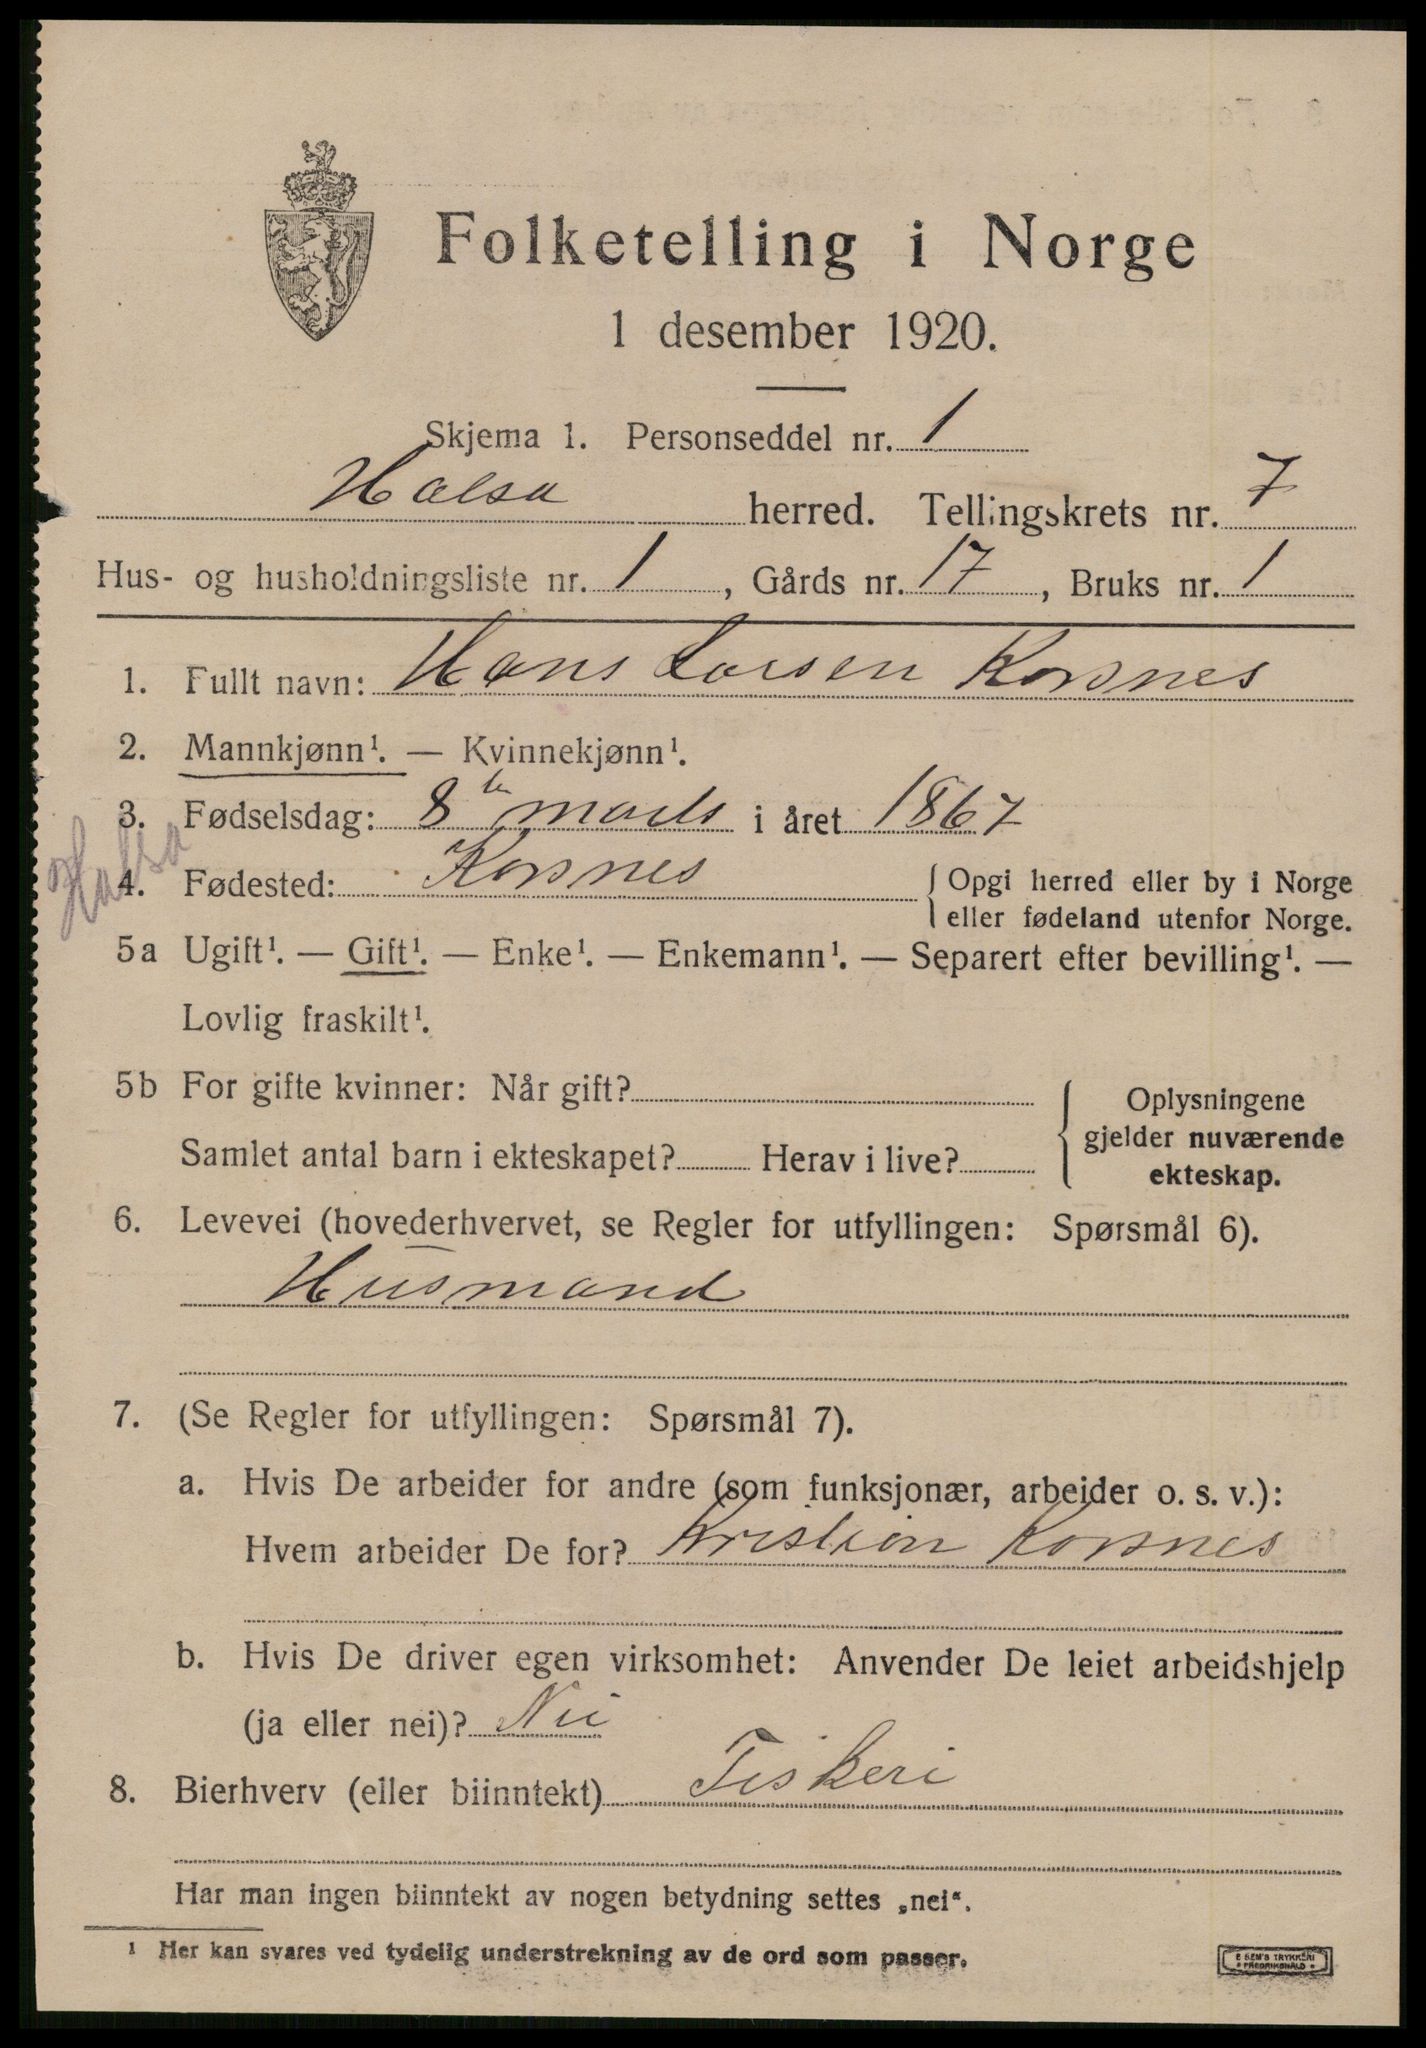 Folketelling i Norge
1 desember 1920.
Skjema 1. Personseddel nr. 1
Halsa herred. Tellingskrets nr. 7
Hus- og husholdningsliste nr. 1, Gårds nr. 17, Bruks nr. 1
1. Fullt navn: Hans Larsen Korsnes
2. Mannkjønn¹. — Kvinnekjønn¹.
3. Fødselsdag: 8de mars i året 1867
Halsa
4. Fødested: Korsnes { Opgi herred eller by i Norge
eller fødeland utenfor Norge.
5a Ugift¹. — Gift¹. — Enke¹. — Enkemann¹. — Separert efter bevilling¹. —
Lovlig fraskilt¹.
5b For gifte kvinner: Når gift? { Oplysningene
gjelder nuværende
Samlet antal barn i ekteskapet? Herav i live?
ekteskap.
6. Levevei (hovederhvervet, se Regler for utfyllingen: Spørsmål 6).
Husmand
7. (Se Regler for utfyllingen: Spørsmål 7).
a. Hvis De arbeider for andre (som funksjonær, arbeider o. s. v.):
Hvem arbeider De for? Kristian Korsnes
b. Hvis De driver egen virksomhet: Anvender De leiet arbeidshjelp
(ja eller nei)? Nei
8. Bierhverv (eller biinntekt) Fiskeri
Har man ingen biinntekt av nogen betydning settes „nei“.
¹ Her kan svares ved tydelig understrekning av de ord som passer.
E SEM'S TRYKKERI
FREDRIKSHALD